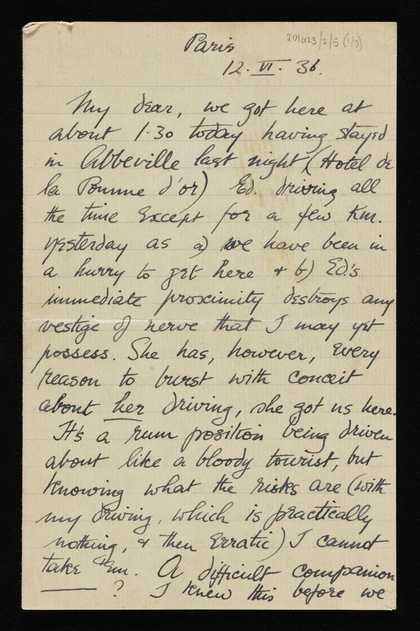 Paris
201023/2/5 (1/3)
12. VI. 36.
My dear, we got here at
about 1.30 today having stayed
in Abbeville last night (Hotel de
la Pomme d'or) Ed. driving all
the time except for a few km.
yesterday as a) we have been in
a hurry to get here & b) Ed's
immediate proximity destroys any
vestige of nerve that I may yet
possess. She has, however, every
reason to burst with conceit
about her driving, she got us here.
It's a rum position being driven
about like a bloody tourist, but
knowing what the risks are (with
my driving, which is practically
nothing, & then erratic) I cannot
take 'em. A difficult companion
—— ? I knew this before we